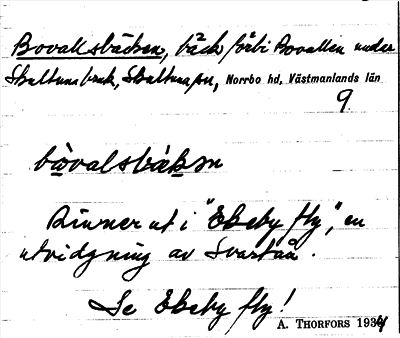 Bovallsbäcken, bäck förbi Bovallen under
Skultuna bruk, Skultuna sn, Norrbo hd, Västmanlands län
9.
bòvalsbàkən
Rinner ut i "Ekeby fly", en
utvidgning av Svartån.
Se Ekeby fly!
A. THORFORS 1934